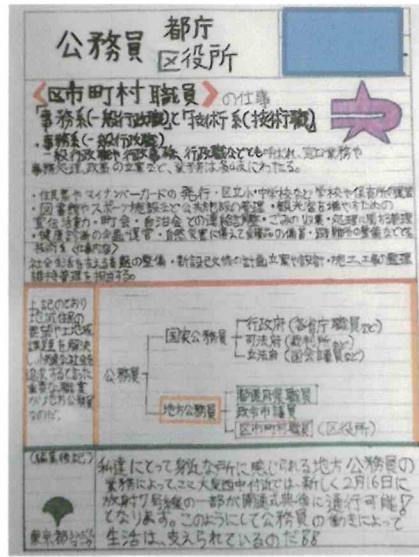 公務員 都庁
区役所
《区市町村職員》の仕事
「事務系(一般行政職)」と「技術系(技術職)」
・事務系(一般行政職)
一般行政職や行政事務、行政職などとも呼ばれ、窓口業務や
事務処理、政策の立案など、
・住民票やマイナンバーカードの発行・区立小・中学校など学校や保育所の運営
・図書館やスポーツ施設など公共施設の管理・観光客誘致やまちの
町会・自治会での連絡調整・ごみの収集・処理に関する管理
・健康診査の企画・運営・自然災害に備えて
社会生活を支える基盤の整備・新設や改修の計画立案や設計・施工、工事の監理
維持管理を担当する。
上記のとおり
地域住民の
要望や地域
課題を解決し、
重要な職業
が地方公務員
なのだ。
公務員
国家公務員
行政府(各省庁職員など)
司法府(裁判所など)
立法府(国会議員など)
地方公務員
都道府県職員
政令市議員
区市町村職員(区役所)
(編集後記)
私達にとって身近な所に感じられる地方公務員の
業務によって、ここ大泉西中付近では、新しく2月16日に
放射7号線の一部が開通式典後に通行可能
となります。このようにして公務員の働きによって
生活は、支えられているのだ!!
東京都